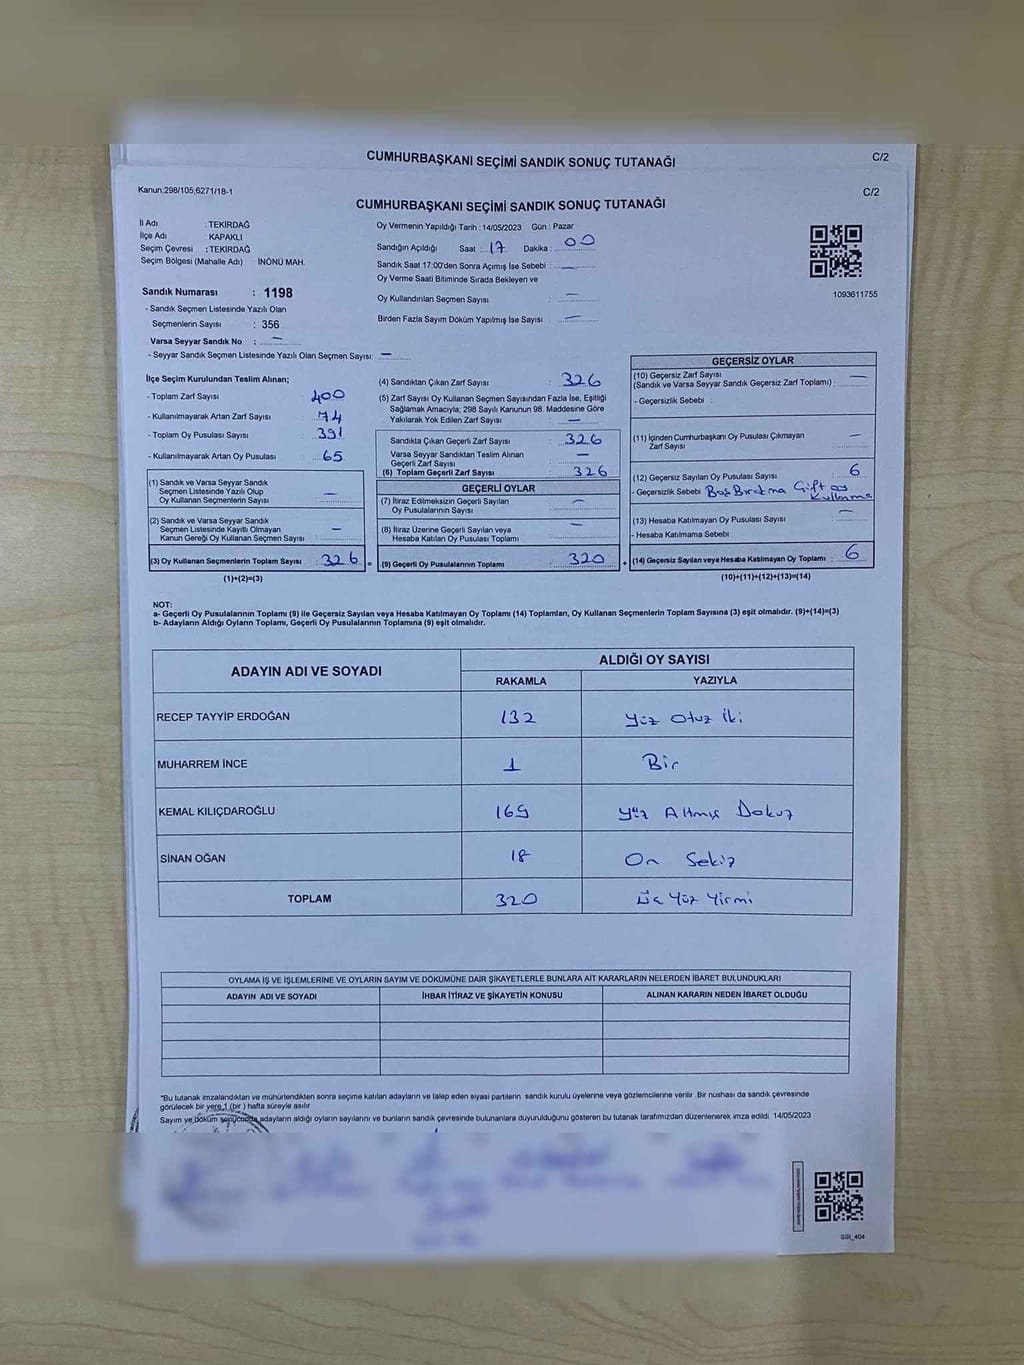 CUMHURBAŞKANI SEÇİMİ SANDIK SONUÇ TUTANAĞI
C/2
Kanun,298/105,6271/18-1
C/2
CUMHURBAŞKANI SEÇİMİ SANDIK SONUÇ TUTANAĞI
İl Adı : TEKİRDAĞ
İlçe Adı : KAPAKLI
Seçim Çevresi : TEKİRDAĞ
Seçim Bölgesi (Mahalle Adı) İNÖNÜ MAH.
Sandık Numarası : 1198
- Sandık Seçmen Listesinde Yazılı Olan
Seçmenlerin Sayısı : 356
Varsa Seyyar Sandık No : —
- Seyyar Sandık Seçmen Listesinde Yazılı Olan Seçmen Sayısı: —
Oy Vermenin Yapıldığı Tarih : 14/05/2023 Gün : Pazar
Sandığın Açıldığı Saat : 17 Dakika : 00
Sandık Saat 17:00'den Sonra Açımış İse Sebebi : —
Oy Verme Saati Bitiminde Sırada Bekleyen ve
Oy Kullandırılan Seçmen Sayısı : —
Birden Fazla Sayım Döküm Yapılmış İse Sayısı : —
1093611755
İlçe Seçim Kurulundan Teslim Alınan;
- Toplam Zarf Sayısı : 400
- Kullanılmayarak Artan Zarf Sayısı : 74
- Toplam Oy Pusulası Sayısı : 391
- Kullanılmayarak Artan Oy Pusulası : 65
(1) Sandık ve Varsa Seyyar Sandık
Seçmen Listesinde Yazılı Olup
Oy Kullanan Seçmenlerin Sayısı : —
(2) Sandık ve Varsa Seyyar Sandık
Seçmen Listesinde Kayıtlı Olmayan
Kanun Gereği Oy Kullanan Seçmen Sayısı : —
(3) Oy Kullanan Seçmenlerin Toplam Sayısı : 326 =
(1)+(2)=(3)
(4) Sandıktan Çıkan Zarf Sayısı : 326
(5) Zarf Sayısı Oy Kullanan Seçmen Sayısından Fazla İse, Eşitliği
Sağlamak Amacıyla; 298 Sayılı Kanunun 98. Maddesine Göre
Yakılarak Yok Edilen Zarf Sayısı : —
Sandıkta Çıkan Geçerli Zarf Sayısı : 326
Varsa Seyyar Sandıktan Teslim Alınan
Geçerli Zarf Sayısı : —
(6) Toplam Geçerli Zarf Sayısı : 326
GEÇERLİ OYLAR
(7) İtiraz Edilmeksizin Geçerli Sayılan
Oy Pusulalarının Sayısı : —
(8) İtiraz Üzerine Geçerli Sayılan veya
Hesaba Katılan Oy Pusulası Toplamı : —
(9) Geçerli Oy Pusulalarının Toplamı : 320 +
GEÇERSİZ OYLAR
(10) Geçersiz Zarf Sayısı
(Sandık ve Varsa Seyyar Sandık Geçersiz Zarf Toplamı) : —
- Geçersizlik Sebebi :
(11) İçinden Cumhurbaşkanı Oy Pusulası Çıkmayan
Zarf Sayısı : —
(12) Geçersiz Sayılan Oy Pusulası Sayısı : 6
- Geçersizlik Sebebi Boş Bırakma Çift oy
Kullanma
(13) Hesaba Katılmayan Oy Pusulası Sayısı : —
- Hesaba Katılmama Sebebi :
(14) Geçersiz Sayılan veya Hesaba Katılmayan Oy Toplamı : 6
(10)+(11)+(12)+(13)=(14)
NOT:
a- Geçerli Oy Pusulalarının Toplamı (9) ile Geçersiz Sayılan veya Hesaba Katılmayan Oy Toplamı (14) Toplamları, Oy Kullanan Seçmenlerin Toplam Sayısına (3) eşit olmalıdır. (9)+(14)=(3)
b- Adayların Aldığı Oyların Toplamı, Geçerli Oy Pusulalarının Toplamına (9) eşit olmalıdır.
ADAYIN ADI VE SOYADI ALDIĞI OY SAYISI
RAKAMLA YAZIYLA
RECEP TAYYİP ERDOĞAN 132 Yüz Otuz İki
MUHARREM İNCE 1 Bir
KEMAL KILIÇDAROĞLU 169 Yüz Altmış Dokuz
SİNAN OĞAN 18 On Sekiz
TOPLAM 320 Üç Yüz Yirmi
OYLAMA İŞ VE İŞLEMLERİNE VE OYLARIN SAYIM VE DÖKÜMÜNE DAİR ŞİKAYETLERLE BUNLARA AİT KARARLARIN NELERDEN İBARET BULUNDUKLARI
ADAYIN ADI VE SOYADI İHBAR İTİRAZ VE ŞİKAYETİN KONUSU ALINAN KARARIN NEDEN İBARET OLDUĞU
"Bu tutanak imzalandıktan ve mühürlendikten sonra seçime katılan adayların ve talep eden siyasi partilerin sandık kurulu üyelerine veya gözlemcilerine verilir. Bir nüshası da sandık çevresinde
görülecek bir yere 1 (bir) hafta süreyle asılır
Sayım ve döküm sonucunda adayların aldığı oyların sayılarını ve bunların sandık çevresinde bulunanlara duyurulduğunu gösteren bu tutanak tarafımızdan düzenlenerek imza edildi. 14/05/2023
SSI_404